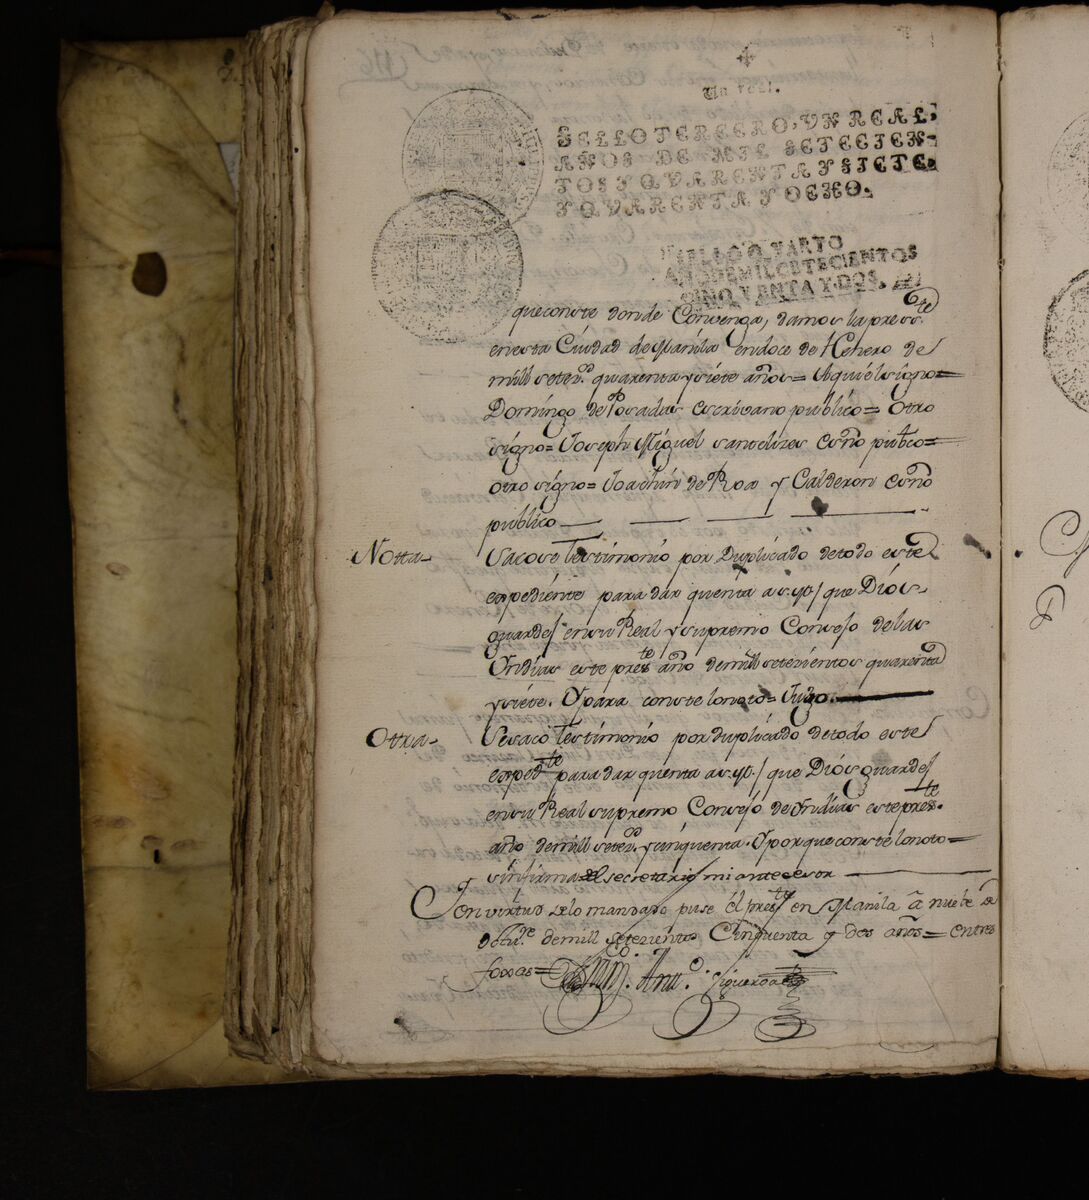 Un real.
SELLO TERCERO, UN REAL,
AÑOS DE MIL SETECIEN-
TOS Y QUARENTA Y SIETE,
Y QUARENTA Y OCHO.
SELLO QVARTO
AÑO DE MIL SETECIENTOS
CINQVENTA Y DOS.
que conste donde Convenga, damos la press.te
en esta Ciudad de Manila en doce de Henero de
mill setez.os quarenta y siete años = Aqui el signo =
Domingo de Posadas escrivano publico = Otro
signo = Joseph Miguel santelizes esno publico =
otro signo = Joachin de Roa y Calderon esno
publico
Notta- Sacose testimonio por Duplicado de todo este
expediente para dar quenta a s. M./ que Dios
guarde/ en su Real y supremo Consejo de las
Yndias este press.te año de mill setezientos quarenta
y siete. Y para conste lo noto =
Otra- Se saco testimonio por duplicado de todo este
exped.te para dar quenta a s. M./ que Dios guarde/
en su Real supremo Consejo de Yndias este pres.te
año de mill setez.os y cinquenta. Y por que conste lo noto =
sin firma del secretario mi antecesor
Y en virtud de lo mandado puse el pres.te en Manila a nuebe de
Octu.re de mill setezientos Cinquenta y dos años = entres
foxas =
Figueroa